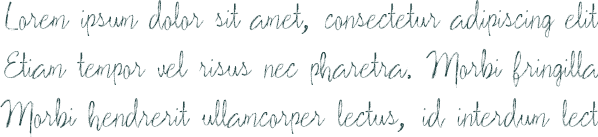 Lorem ipsum dolor sit amet, consectetur adipiscing elit
Etiam tempor vel risus nec pharetra. Morbi fringilla
Morbi hendrerit ullamcorper lectus, id interdum lect